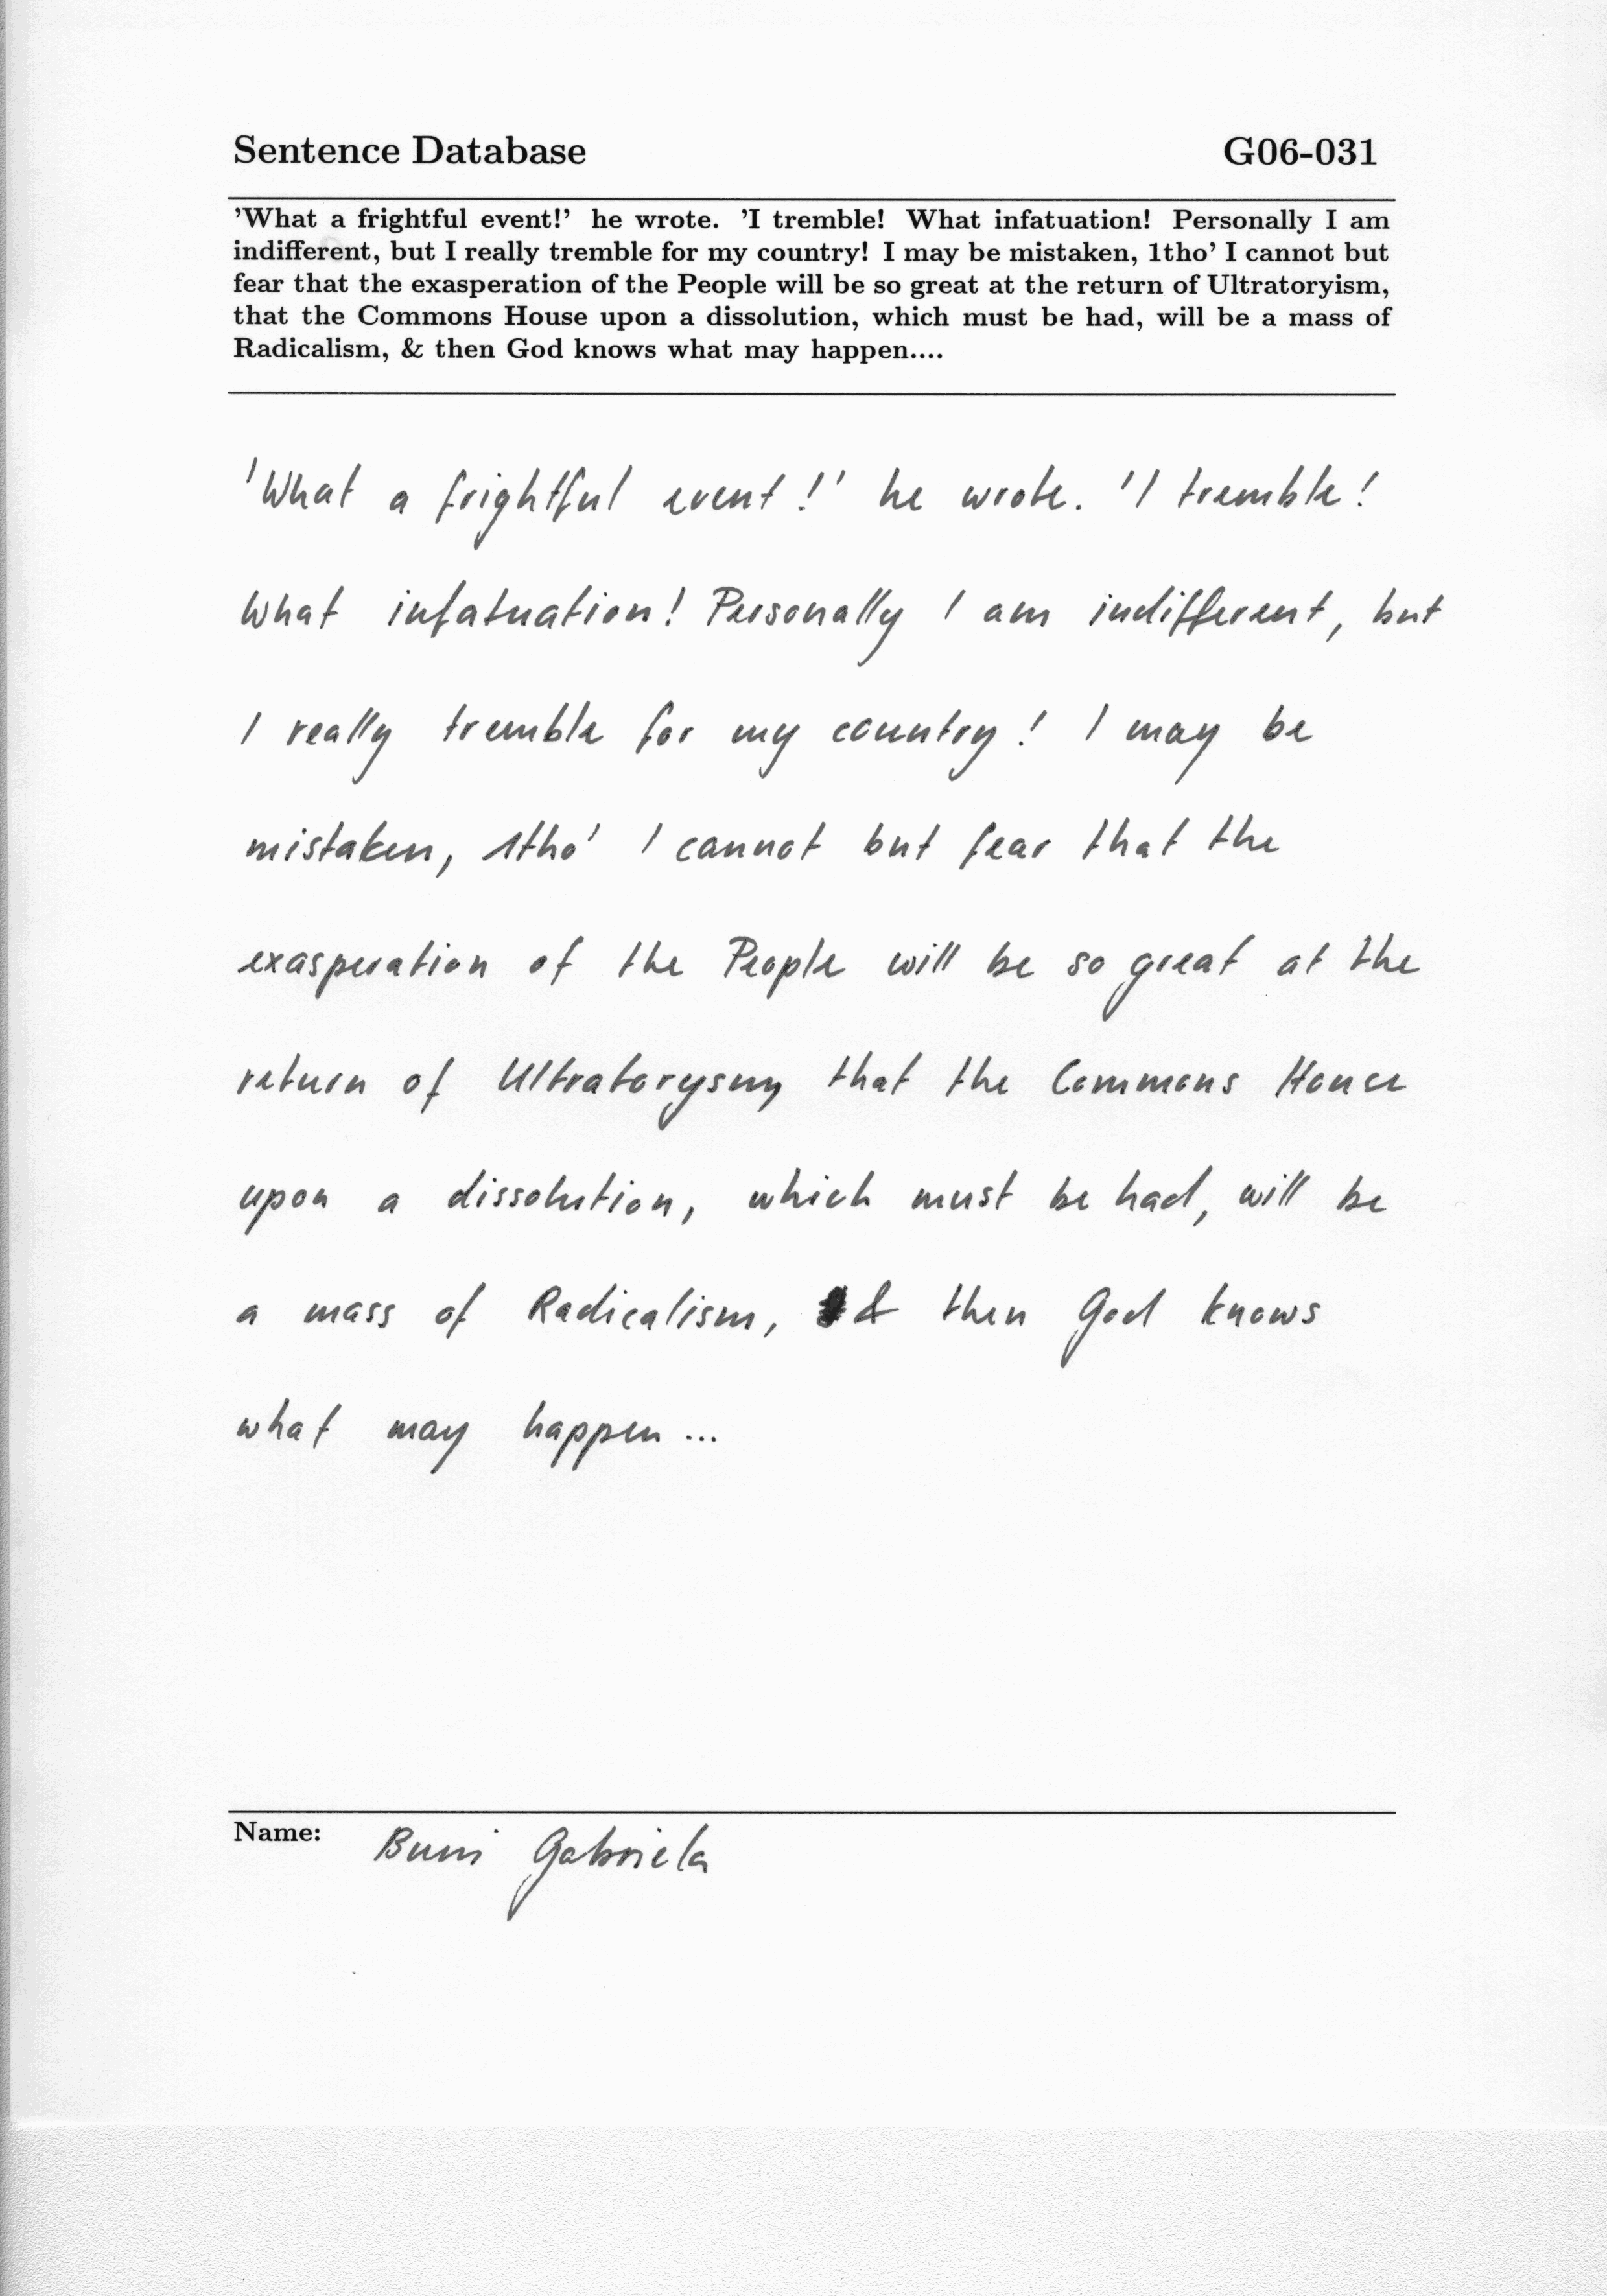 Sentence Database G06-031
'What a frightful event!' he wrote. 'I tremble! What infatuation! Personally I am
indifferent, but I really tremble for my country! I may be mistaken, 1tho' I cannot but
fear that the exasperation of the People will be so great at the return of Ultratoryism,
that the Commons House upon a dissolution, which must be had, will be a mass of
Radicalism, & then God knows what may happen....
'What a frightful event!' he wrote. 'I tremble!
What infatuation! Personally I am indifferent, but
I really tremble for my country! I may be
mistaken, 1tho' I cannot but fear that the
exasperation of the People will be so great at the
return of Ultratorysm, that the Commons House
upon a dissolution, which must be had, will be
a mass of Radicalism, & then God knows
what may happen...
Name: Gabriela